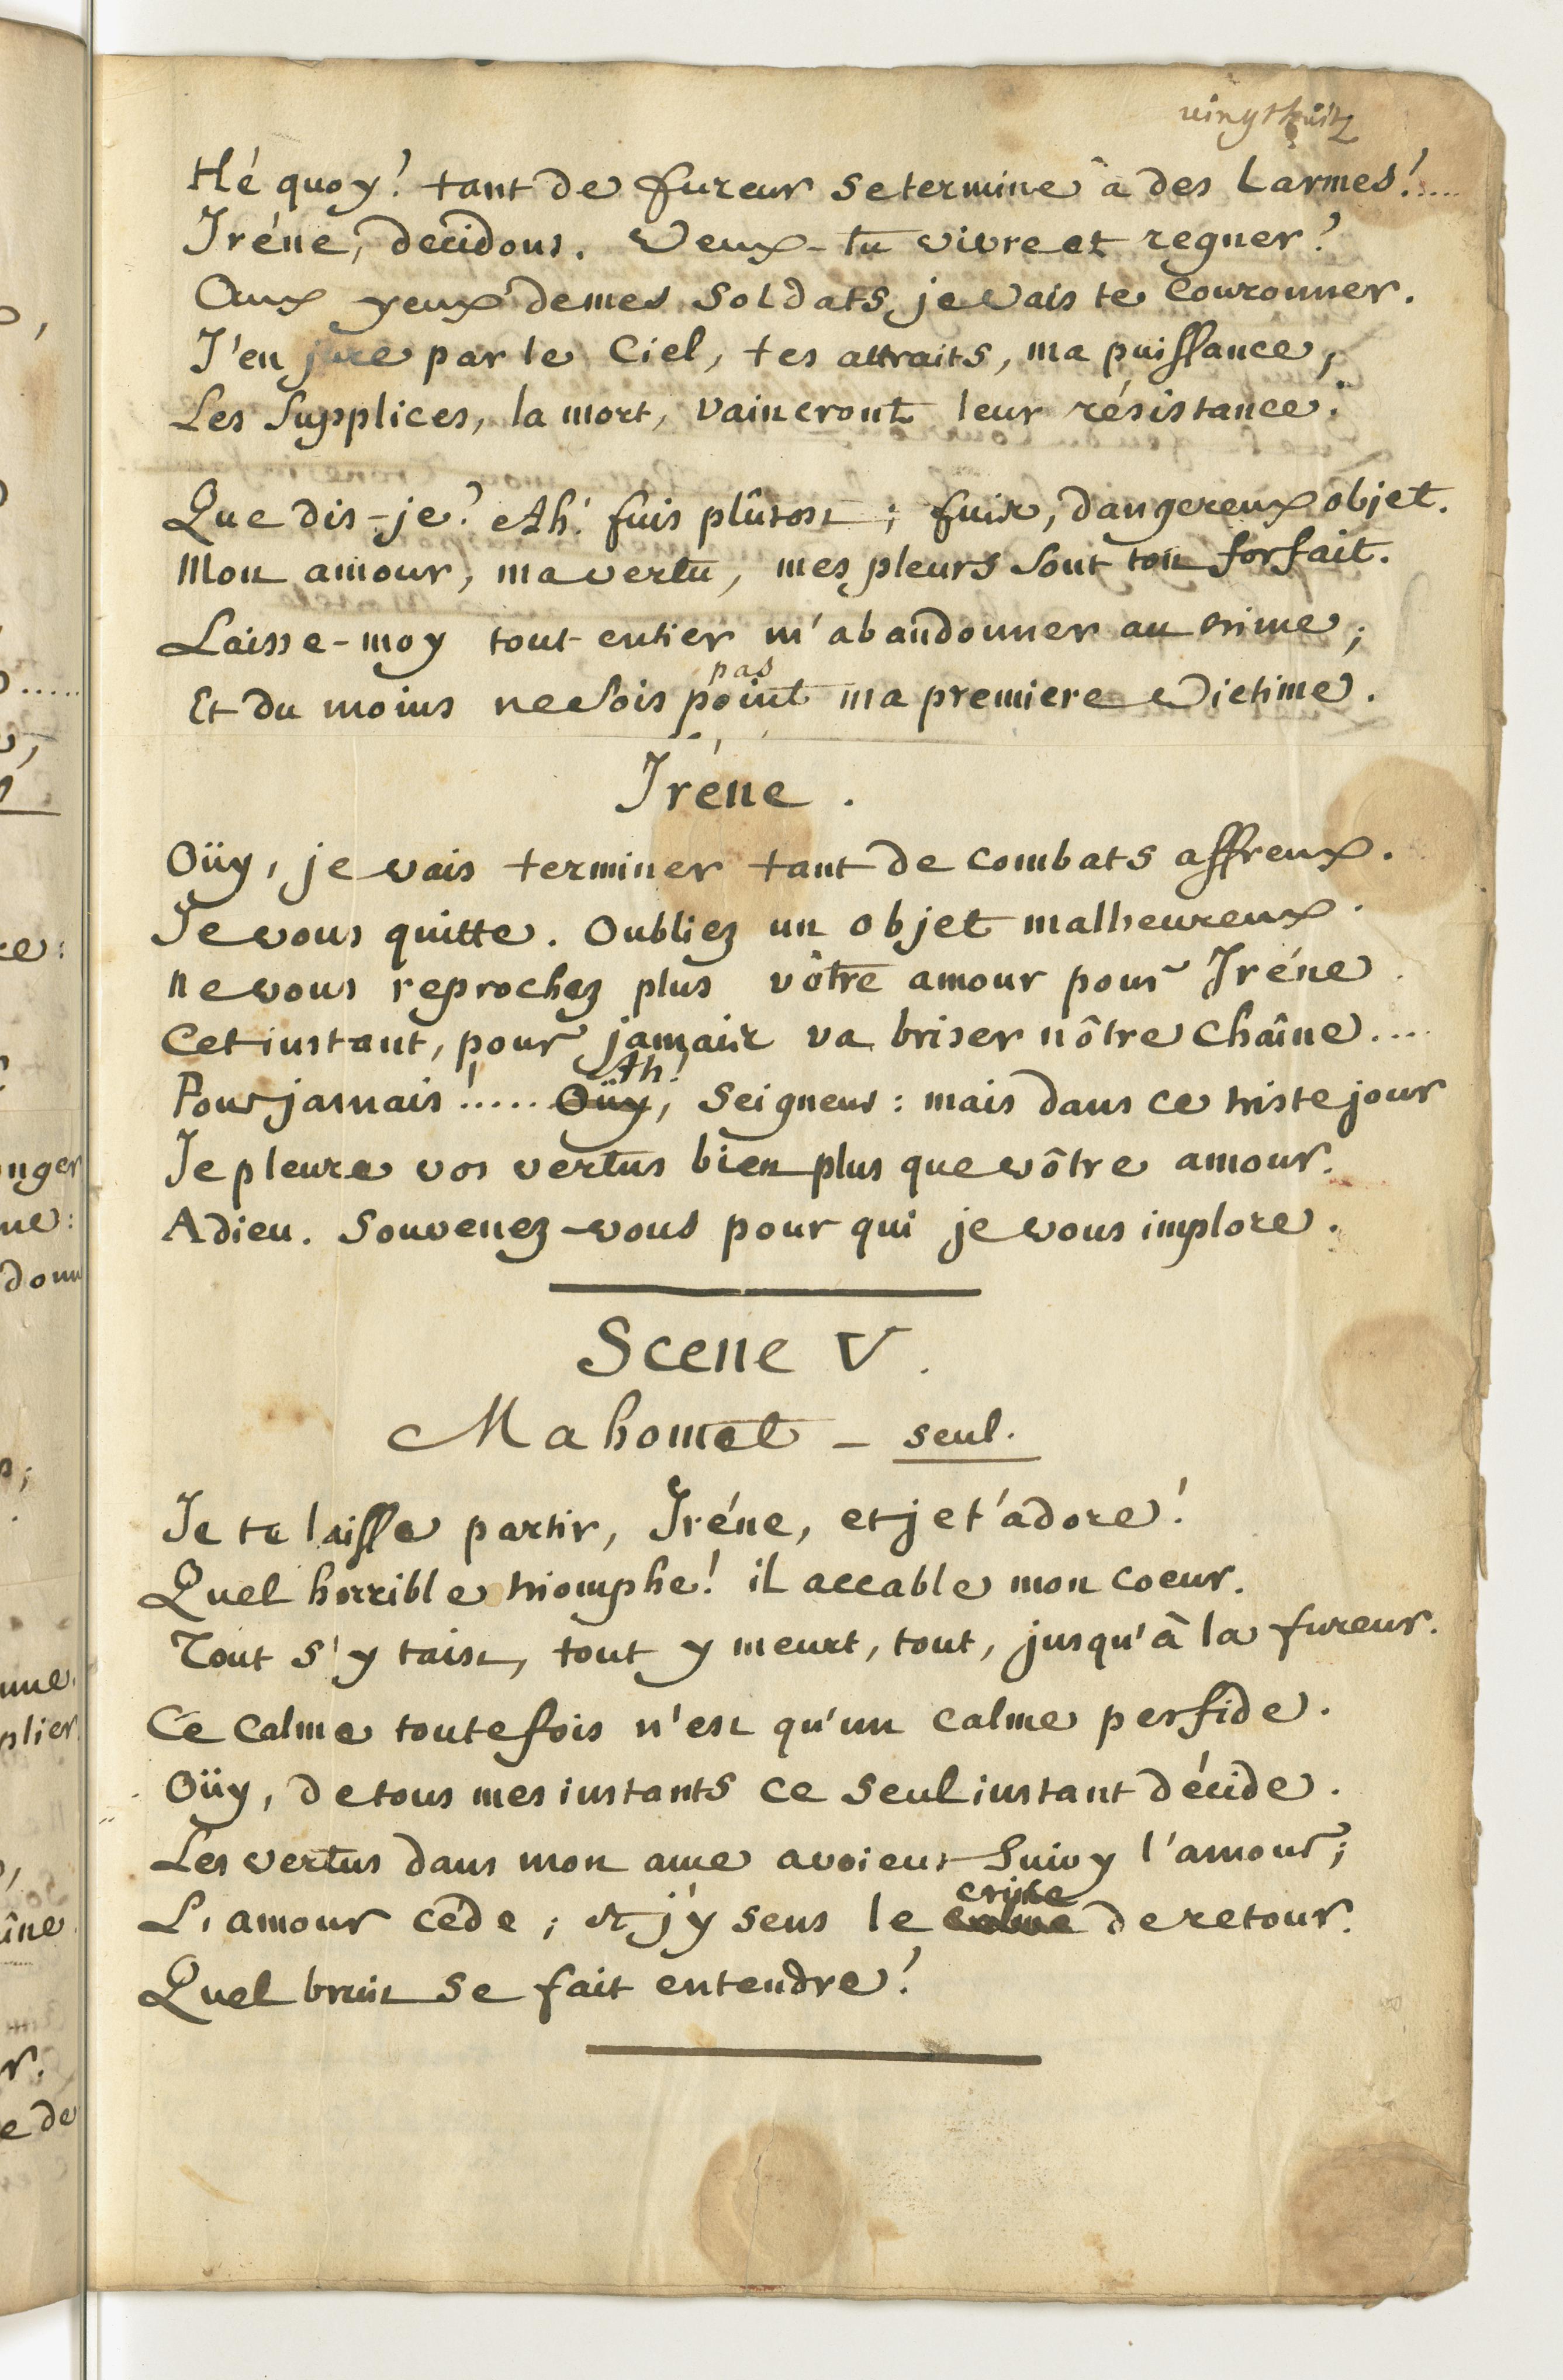 vingthuit
Hé quoy! tant de fureur se termine à des Larmes!.....
Iréne, décidons. Veux-tu vivre et regner?
Aux yeux de mes Soldats je vais te Couronner.
J'en jure par le Ciel, tes attraits, ma puissance,
Les Supplices, la mort, Vaincront leur résistance.
Que dis-je? Ah! fuis plûtost; fuis, dangereux objet.
Mon amour, ma vertu, mes pleurs Sont ton forfait.
Laisse-moy tout entier m'abandonner au crime;
pas
Et du moins ne Sois point ma premiere Victime.
Iréne.
Oüy, je vais terminer tant de Combats affreux.
Je vous quitte. Oubliez un objet malheureux.
Ne vous reprochez plus vôtre amour pour Iréne.
Cet instant, pour jamais va briser nôtre Chaîne....
Ah!
Pour jamais!..... Oüy, Seigneur: mais dans ce triste jour
Je pleure vos vertus bien plus que vôtre amour.
Adieu. Souvenez-vous pour qui je vous implore.
Scene V.
Mahomet - seul.
Je te laisse partir, Iréne, et je t'adore!
Quel horrible triomphe! il accable mon coeur.
Tout s'y taist, tout y meurt, tout, jusqu'à la fureur.
Ce Calme toutefois n'est qu'un calme perfide.
Oüy, de tous mes instants ce Seul instant décide.
Les vertus dans mon ame avoient Suivy l'amour;
crime
L'amour céde; et j'y sens le de retour.
Quel bruit se fait entendre!